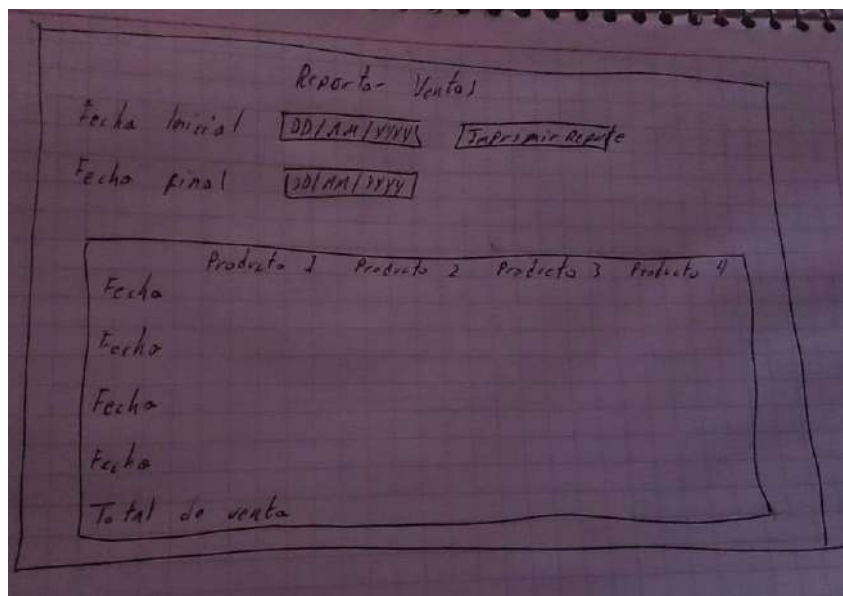 Reportar Ventas
Fecha Inicial DD/MM/YYYY Imprimir Reporte
Fecha final DD/MM/YYYY
Producto 1 Producto 2 Producto 3 Producto 4
Fecha
Fecha
Fecha
Fecha
Total de venta